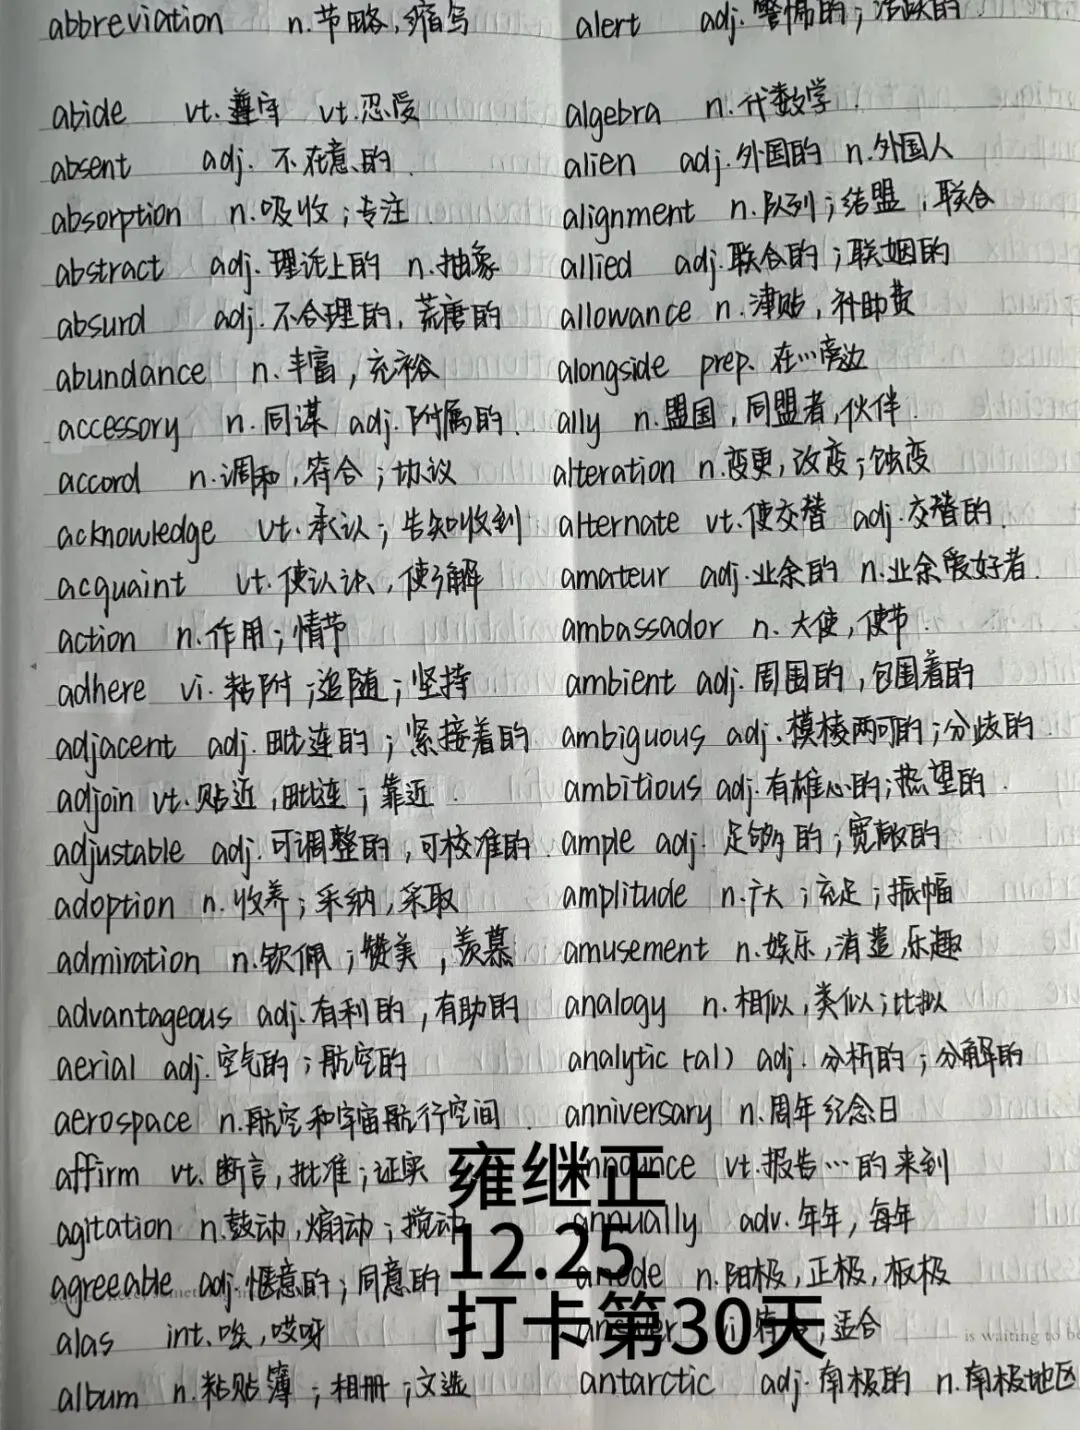 abbreviation n.节略,缩写
abide vt.遵守 vt.忍受
absent adj.不在意的
absorption n.吸收;专注
abstract adj.理论上的 n.抽象
absurd adj.不合理的,荒唐的
abundance n.丰富,充裕
accessory n.同谋 adj.附属的
accord n.调和,符合;协议
acknowledge vt.承认;告知收到
acquaint vt.使认识,使了解
action n.作用;情节
adhere vi.粘附;追随;坚持
adjacent adj.毗连的;紧接着的
adjoin vt.贴近,毗连;靠近
adjustable adj.可调整的,可校准的
adoption n.收养;采纳,采取
admiration n.钦佩;赞美,羡慕
advantageous adj.有利的,有助的
aerial adj.空气的;航空的
aerospace n.航空和宇宙航行空间
affirm vt.断言,批准;证实
agitation n.鼓动,煽动;搅动
agreeable adj.惬意的;同意的
alas int.唉,哎呀
album n.粘贴簿;相册;文选
alert adj.警惕的;活跃的
algebra n.代数学
alien adj.外国的 n.外国人
alignment n.队列;结盟;联合
allied adj.联合的;联姻的
allowance n.津贴,补助费
alongside prep.在…旁边
ally n.盟国,同盟者,伙伴
alteration n.变更,改变;蚀变
alternate vt.使交替 adj.交替的
amateur adj.业余的 n.业余爱好者
ambassador n.大使,使节
ambient adj.周围的,包围着的
ambiguous adj.模棱两可的;分歧的
ambitious adj.有雄心的;热望的
ample adj.足够的;宽敞的
amplitude n.广大;充足;振幅
amusement n.娱乐,消遣,乐趣
analogy n.相似,类似;比拟
analytic(al) adj.分析的;分解的
anniversary n.周年纪念日
announce vt.报告…的来到
annually adv.年年,每年
anode n.阳极,正极,板极
answer vi.符合;适合
antarctic adj.南极的 n.南极地区
雍继正
12.25
打卡第30天
is waiting to be